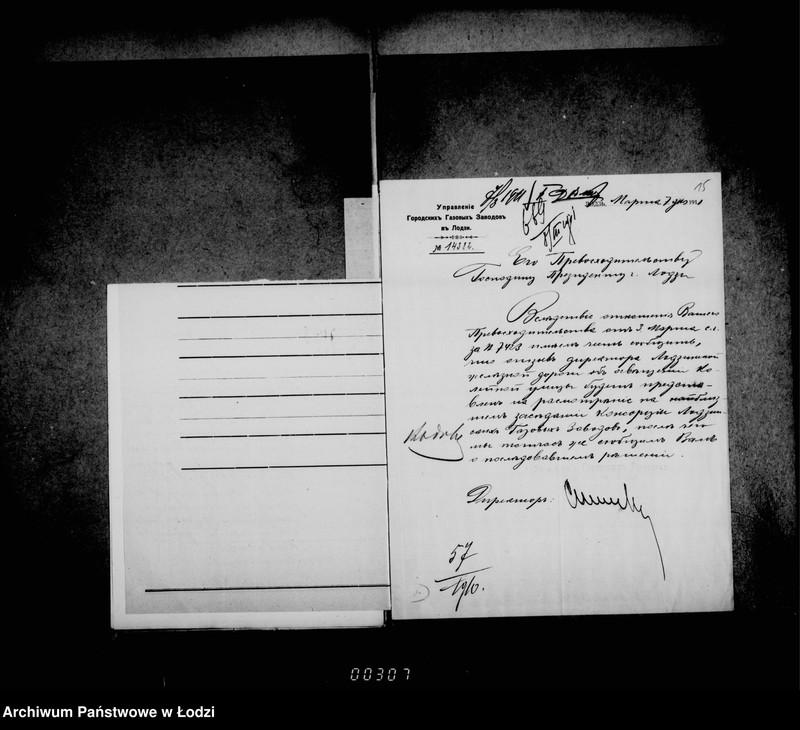 15
Управленіе
Городскихъ Газовыхъ Заводовъ
въ Лодзи.
№ 14322.
689
Марта 7 дня
Его Превосходительству
Господину Президенту г. Лодзи
Вслѣдствіе отношенія Вашего
Превосходительства отъ 3 Марта с.г.
за № 7413 имѣемъ честь сообщить,
что отзывъ директора Лодзинской
желѣзной дороги объ освѣщеніи Ко-
лейной улицы будетъ предста-
вленъ на разсмотрѣніе на ближай-
шемъ засѣданіи Консорціи Лодзин-
скихъ Газовыхъ Заводовъ, послѣ чего
мы тотчасъ же сообщимъ Вамъ
о послѣдовавшемъ рѣшеніи.
Директоръ:
57
1910.
00307
Archiwum Państwowe w Łodzi